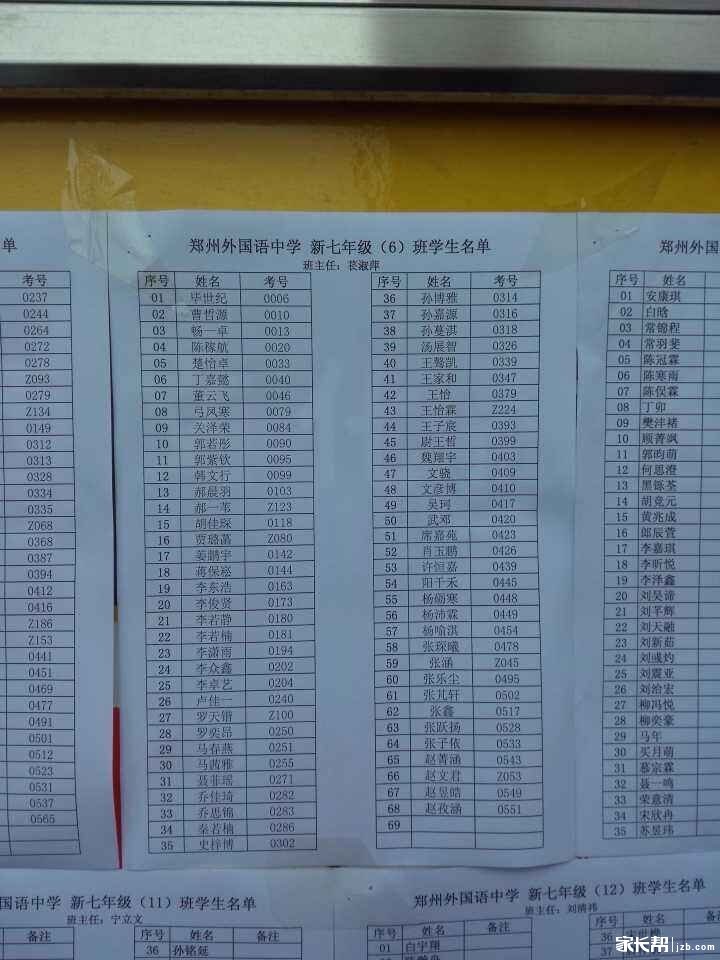 单
考号
0237
0244
0264
0272
0278
Z093
0279
Z134
0149
0312
0313
0328
0334
0335
Z068
0368
0387
0394
0412
0416
Z186
Z153
0441
0451
0469
0477
0491
0501
0512
0523
0531
0537
0565
郑州外国语中学 新七年级（6）班学生名单
班主任：裴淑萍
序号 姓名 考号
01 毕世纪 0006
02 曹哲源 0010
03 杨一卓 0013
04 陈稼航 0020
05 楚怡卓 0033
06 丁嘉懿 0040
07 董云飞 0046
08 弓凤寒 0079
09 关泽荣 0084
10 郭若彤 0090
11 郭紫钦 0095
12 韩文行 0099
13 郝晨羽 0103
14 郝一苇 Z123
15 胡佳琛 0118
16 贾璐菡 Z080
17 姜鹏宇 0142
18 蒋保崧 0144
19 李东浩 0163
20 李俊贤 0173
21 李若静 0180
22 李若楠 0181
23 李潇雨 0194
24 李众鑫 0202
25 李卓艺 0204
26 卢佳一 0240
27 罗天锴 Z100
28 罗奕昂 0250
29 马春燕 0251
30 马茜雅 0255
31 聂菲瑶 0271
32 乔佳琦 0282
33 乔思锦 0283
34 秦若楠 0286
35 史梓博 0302
36 孙博雅 0314
37 孙嘉源 0316
38 孙蔓淇 0318
39 汤展智 0326
40 王鹭凯 0339
41 王家和 0347
42 王怡 0379
43 王怡霖 Z224
44 王子宸 0393
45 尉王哲 0399
46 魏翔宇 0403
47 文骁 0409
48 文彦博 0410
49 吴珂 0417
50 武邓 0420
51 席嘉苑 0423
52 肖玉鹏 0426
53 许恒嘉 0439
54 阳千禾 0445
55 杨砺寒 0448
56 杨沛霖 0449
57 杨喻淇 0454
58 张琛曦 0478
59 张涵 Z045
60 张乐尘 0495
61 张芃轩 0502
62 张鑫 0517
63 张跃扬 0528
64 张子依 0533
65 赵菁涵 0543
66 赵文君 Z053
67 赵昱皓 0549
68 赵孜涵 0551
69
郑州外国
序号 姓名
01 安康琪
02 白晗
03 常锦程
04 常羽斐
05 陈冠霖
06 陈寒雨
07 陈俣霖
08 丁卯
09 樊沣禇
10 顾菁飒
11 郭昀萌
12 何思澄
13 黑铄荃
14 胡竞元
15 黄兆成
16 郎辰萱
17 李嘉琪
18 李昕悦
19 李泽鑫
20 刘昊谛
21 刘芊辉
22 刘天融
23 刘新茹
24 刘彧灼
25 刘震亚
26 刘治宏
27 柳冯悦
28 柳奕豪
29 马年
30 买月萌
31 慕宗霖
32 聂一鸣
33 荣意清
34 宋欣冉
35 苏昱玮
国语中学 新七年级（11）班学生名单
班主任：宁立文
备注 序号 姓名 备注
36 孙铭延
郑州外国语中学 新七年级（12）班学生名单
班主任：刘倩祎
序号 姓名 备注 序号 姓名 备
01 白宇翔
36
37
家长帮 jzb.com